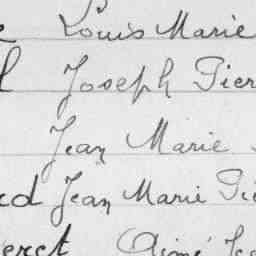 Louis Marie
Joseph Pier
Jean Marie
rd Jean Marie Pie
eret Aimé Je